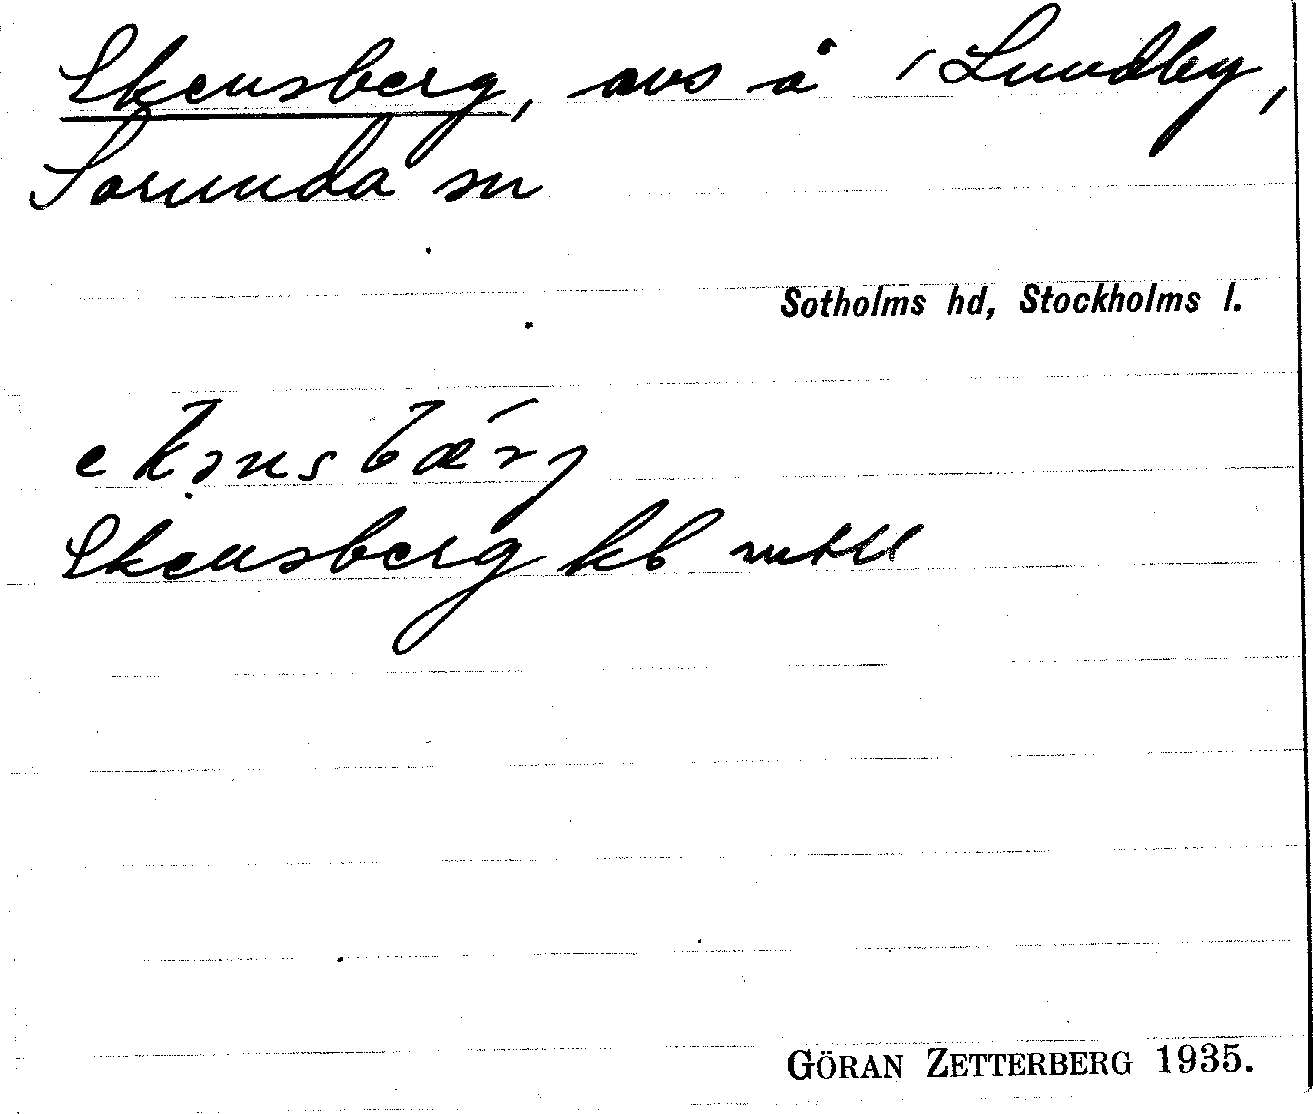 Ekensberg, avs å i Lundby,
Sorunda sn
Sotholms hd, Stockholms l.
Ekensberg kb
GÖRAN ZETTERBERG 1935.